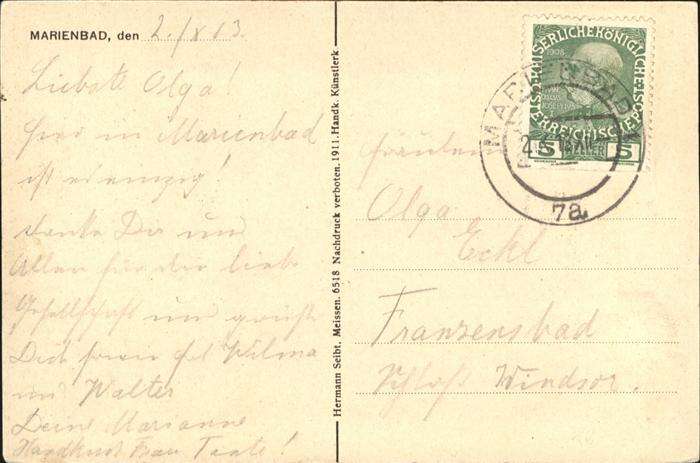 MARIENBAD, den 2./IX 13.
Liebste Olga!
hier in Marienbad
ist es einzig!
danke Dir und
Allen für die liebe
Gesellschaft und grüßt
Dich sowie Wilma
und Walter
Deine Marianne
Handkuss Frau Tante!
Hermann Seibt, Meissen. 6518 Nachdruck verboten. 1911. Handk. Künstlerk.
KAISERLICHE KÖNIGLICHE
ÖSTERREICHISCHE POST
1908
5 HELLER 5
MARIENBAD
7a
Fräulein
Olga
Eckl
Franzensbad
Schloß Windsor.